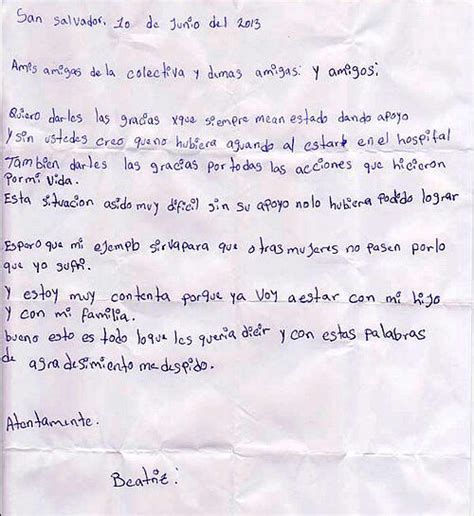 San Salvador, 10 de Junio del 2013
Amis amigas de la colectiva y dumas amigas: y amigos:
Quiero darles las gracias xque siempre mean estado dando apoyo
y sin ustedes creo queno hubiera aguando al estar en el hospital
Tambien darles las gracias por todas las acciones que hicieron
Pormi vida.
Esta situacion asido muy dificil sin su apoyo nolo hubiera podido lograr
Espero que mi ejemplo sirvapara que otras mujeres no pasen porlo
que yo sufri.
Y estoy muy contenta porque ya voy aestar con mi hijo
y con mi familia.
bueno esto es todo loque les queria dicir y con estas palabras
de agradesimiento me despido.
Atentamente.
Beatriz: